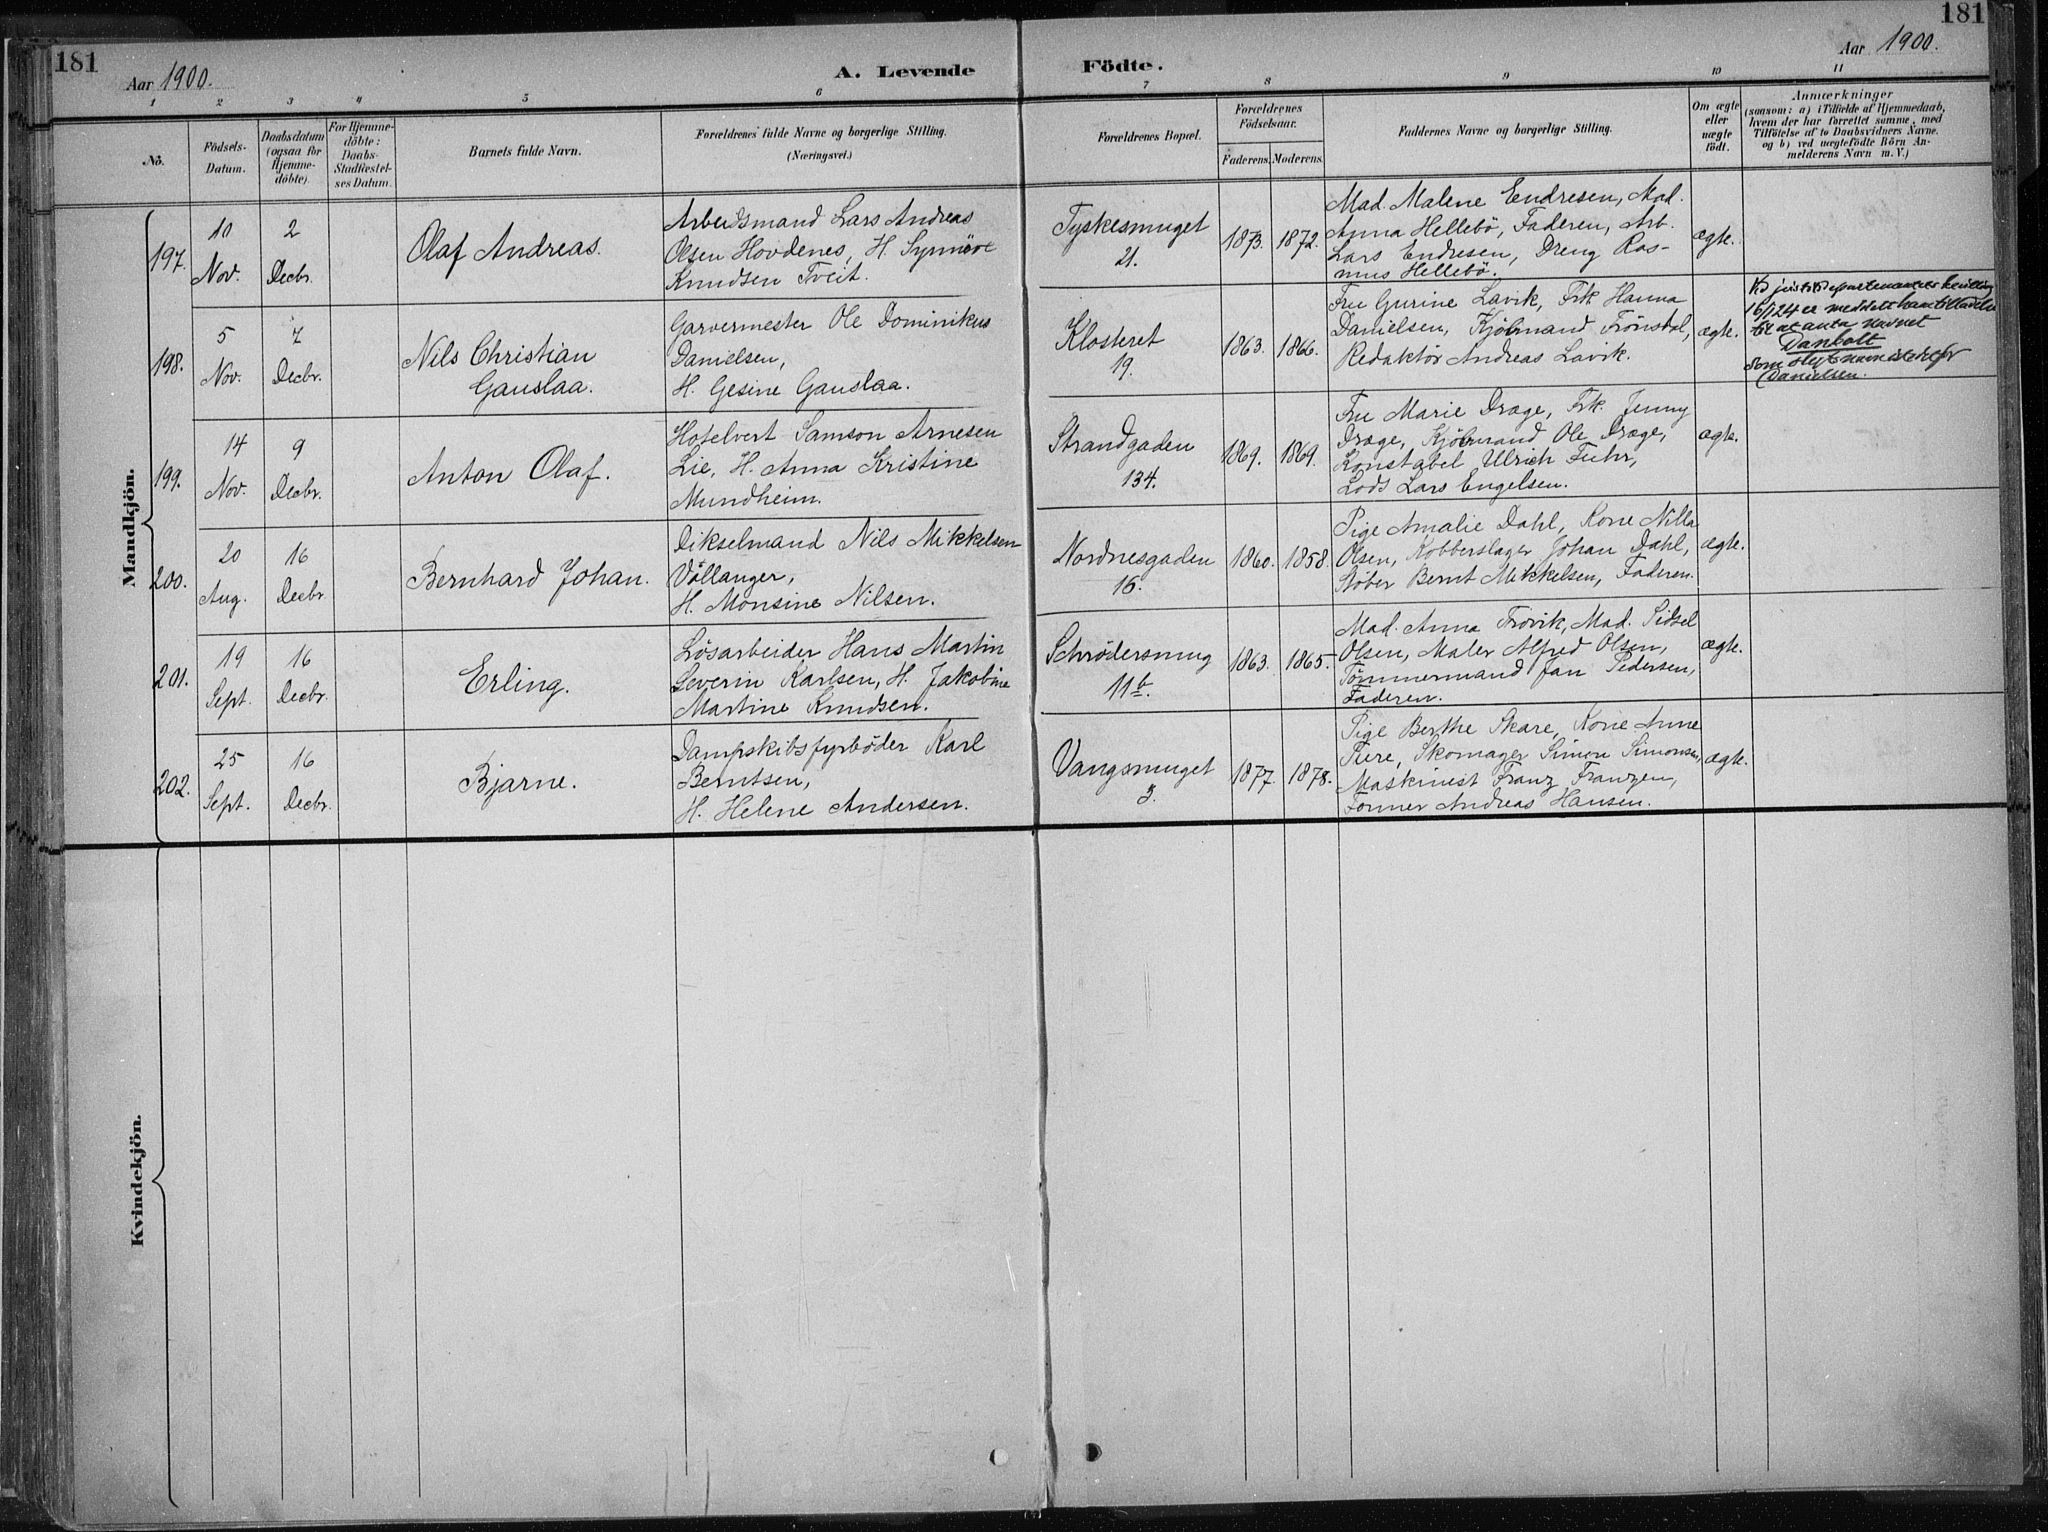 181
181
Aar 1900.
A. Levende Födte.
Aar 1900.
1 2 3 4 5 6 7 8 9 10 11
No.
Födsels-Datum.
Daabsdatum (ogsaa for Hjemme-döbte).
For Hjemme-döbte: Daabs-Stadfæstel-ses Datum.
Barnets fulde Navn.
Forældrenes fulde Navne og borgerlige Stilling. (Næringsvei.)
Forældrenes Bopæl.
Forældrenes Födselsaar.
Faderens. Moderens.
Faddernes Navne og borgerlige Stilling.
Om ægte eller uægte födt.
Anmærkninger
(saasom: a) i Tilfælde af Hjemmedaab,
hvem der har forrettet samme, med
Tilföielse af to Daabsvidners Navne.
og b) ved uægtefödte Börn An-
melderens Navn m. V.)
Mandkjön.
197.
10 Nov.
2 Decbr.
Olaf Andreas.
Arbeidsmand Lars Andreas
Olsen Hovdenes, H. Synnöve
Knudsen Tveit.
Tyskesmuget
21.
1873. 1872.
Mad. Malene Endresen, Mad.
Anna Hellebö, Faderen, Arb.
Lars Endresen, Dreng Ras-
mus Hellebö.
ægte.
198.
5 Nov.
7 Decbr.
Nils Christian
Gauslaa.
Garvermester Ole Dominikus
Danielsen,
H. Gesine Gauslaa.
Klosteret
19.
1863. 1866.
Fru Gurine Lavik, Frk Hanna
Danielsen, Kjöbmand Trönsdal,
Redaktör Andreas Lavik.
ægte.
16/1 24 er meddelt ham tilladelse
til at anta navnet
Danbolt
som slegtsnavn istedetfor
Danielsen.
199.
14 Nov.
9 Decbr.
Anton Olaf.
Hotelvert Samson Arnesen
Lie, H. Anna Kristine
Mundheim.
Strandgaden
134.
1869. 1869.
Fru Marie Dræge, Frk. Jenny
Dræge, Kjöbmand Ole Dræge,
Konstabel Ulrich Fuhr,
Lods Lars Engelsen.
ægte.
200.
20 Aug.
16 Decbr.
Bernhard Johan.
Dikselmand Nils Mikkelsen
Vollanger,
H. Monsine Nilsen.
Nordnesgaden
16.
1860. 1858.
Pige Amalie Dahl, Kone Nilla
Olsen, Kobberslager Johan Dahl,
Støber Bernt Mikkelsen, Faderen.
ægte.
201.
19 Sept.
16 Decbr.
Erling.
Løsarbeider Hans Martin
Severin Karlsen, H. Jakobine
Martine Knudsen.
Schrødersmug
11b.
1863. 1865.
Mad. Anna Trovik, Mad. Sidsel
Olsen, Maler Alfred Olsen,
Tømmermand Jan Pedersen,
Faderen.
ægte.
202.
25 Sept.
16 Decbr.
Bjarne.
Dampskibsfyrbøder Karl
Berntsen,
H. Helene Andersen.
Vangsmuget
3.
1877. 1878.
Pige Berthe Skare, Kone Anne
Skomager Simon Simonsen,
Maskinist Franz Franzen,
Former Andreas Hansen.
ægte.
Kvindekjön.